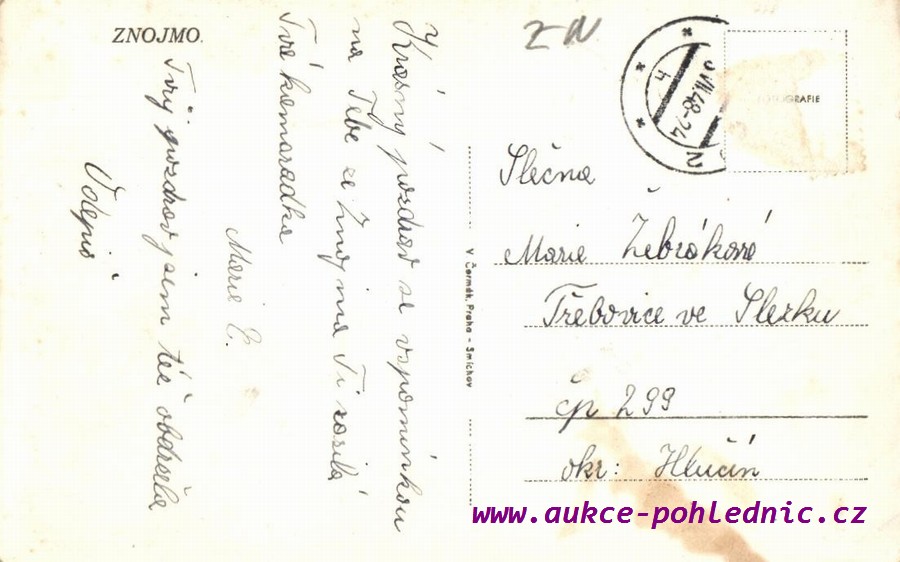 ZNOJMO.
Krásný pozdrav se vspomínkou
na Tebe ze Znojma Ti zasílá
Tvá kamarádka
Marie Č.
Tvůj pozdrav jsem též obdržela
Odepiš
V. Čermák, Praha - Smíchov
ZN
VII.48-24
FOTOGRAFIE
Slečna
Marie Žebráková
Třebovice ve Slezku
čp 299
okr: Hlučín
www.aukce-pohlednic.cz